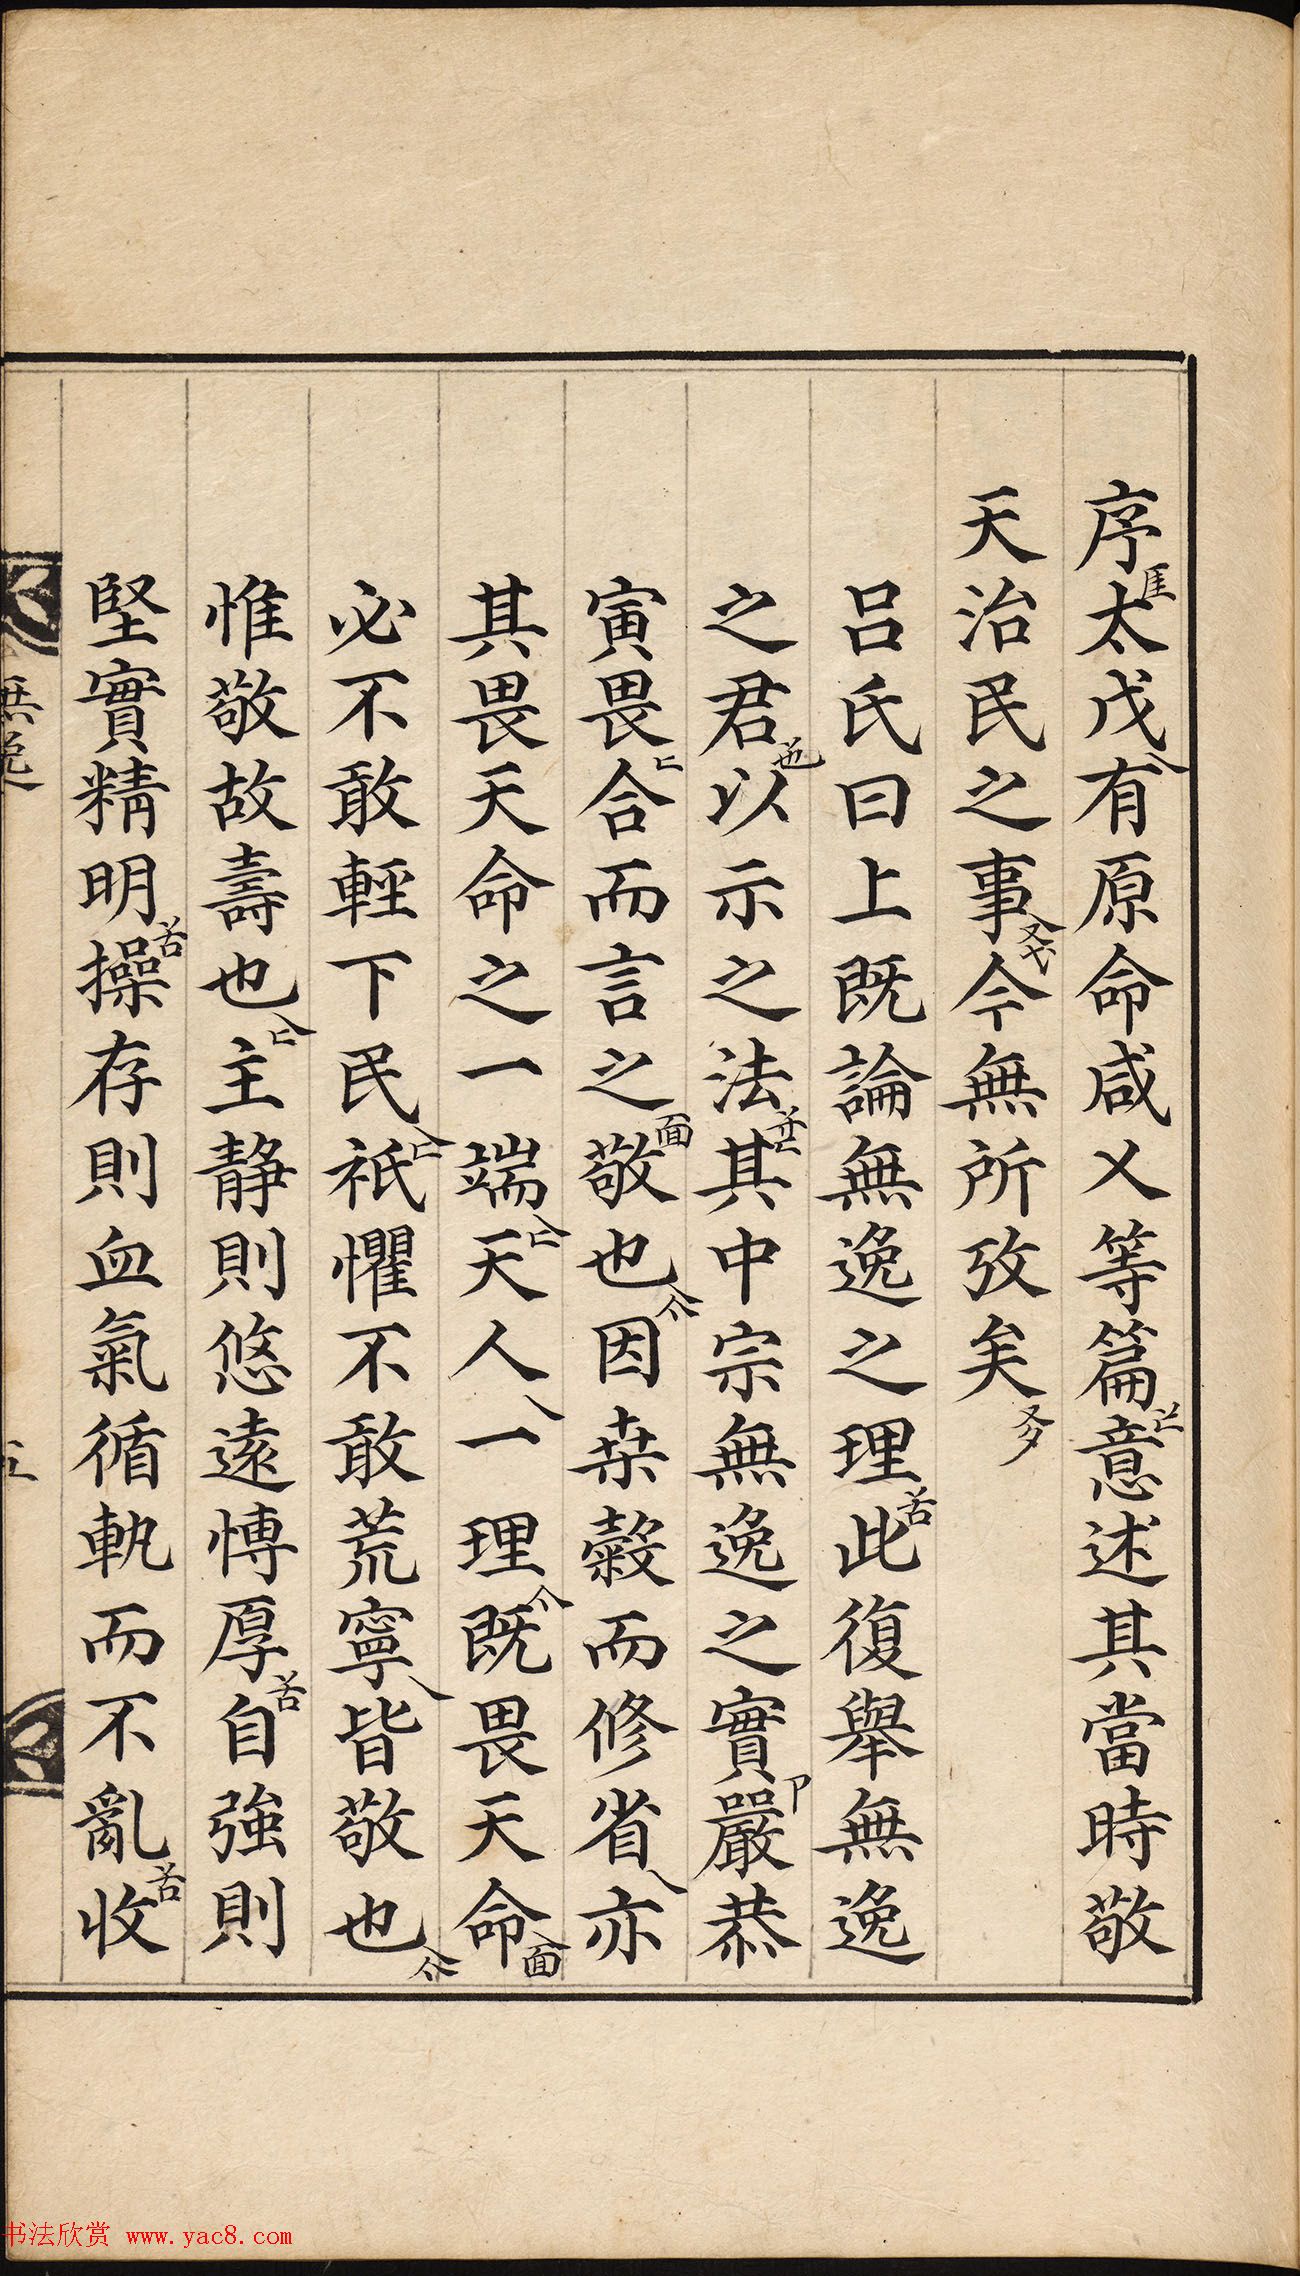 序太戊有原命咸乂等篇意述其當時敬
天治民之事今無所攷矣
吕氏曰上既論無逸之理此復舉無逸
之君以示之法其中宗無逸之實嚴恭
寅畏合而言之敬也因桒穀而修省亦
其畏天命之一端天人一理既畏天命
必不敢輕下民祇懼不敢荒寧皆敬也
惟敬故壽也主静則悠遠慱厚自強則
堅實精明操存則血氣循軌而不亂收
無逸
五
书法欣赏 www.yac8.com